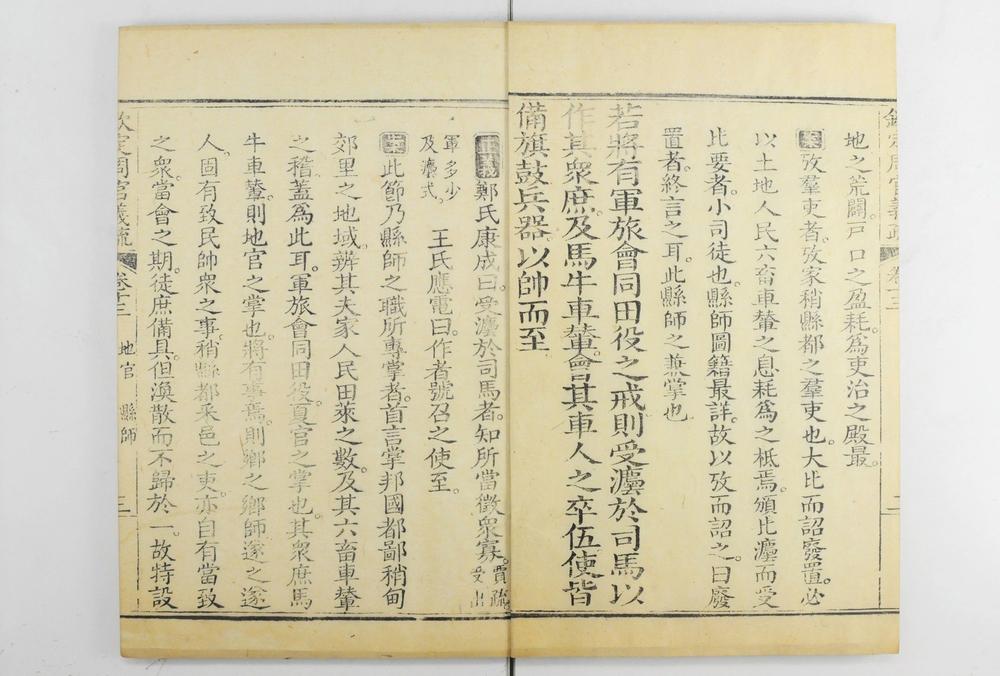 地之荒闢。戸口之盈耗。為吏治之殿最。
案攷羣吏者。攷家稍縣都之羣吏也。大比而詔廢置。必
以土地人民六畜車輦之息耗為之柢焉。頒比灋而受
比要者。小司徒也。縣師圖籍最詳。故以攷而詔之。曰廢
置者。終言之耳。此縣師之兼掌也
若將有軍旅會同田役之戒則受灋於司馬以
作其衆庶。及馬牛車輦。會其車人之卒伍。使皆
備旗鼓兵器。以帥而至
正義鄭氏康成曰。受灋於司馬者。知所當徵衆寡。賈疏受出
軍多少及灋式。 王氏應電曰。作者號召之使至。
案此節乃縣師之職所專掌者。首言掌邦國都鄙稍甸
郊里之地域。辨其夫家人民田萊之數。及其六畜車輦
之稽。蓋為此耳。軍旅會同田役。夏官之掌也。其衆庶馬
牛車輦。則地官之掌也。將有事焉。則鄉之鄉師遂之遂
人。固有致民帥衆之事。稍縣都采邑之吏。亦自有當致
之衆。當會之期。徒庶備具。但渙散而不歸於一。故特設
欽定周官義疏 卷十二 地官 縣師 三